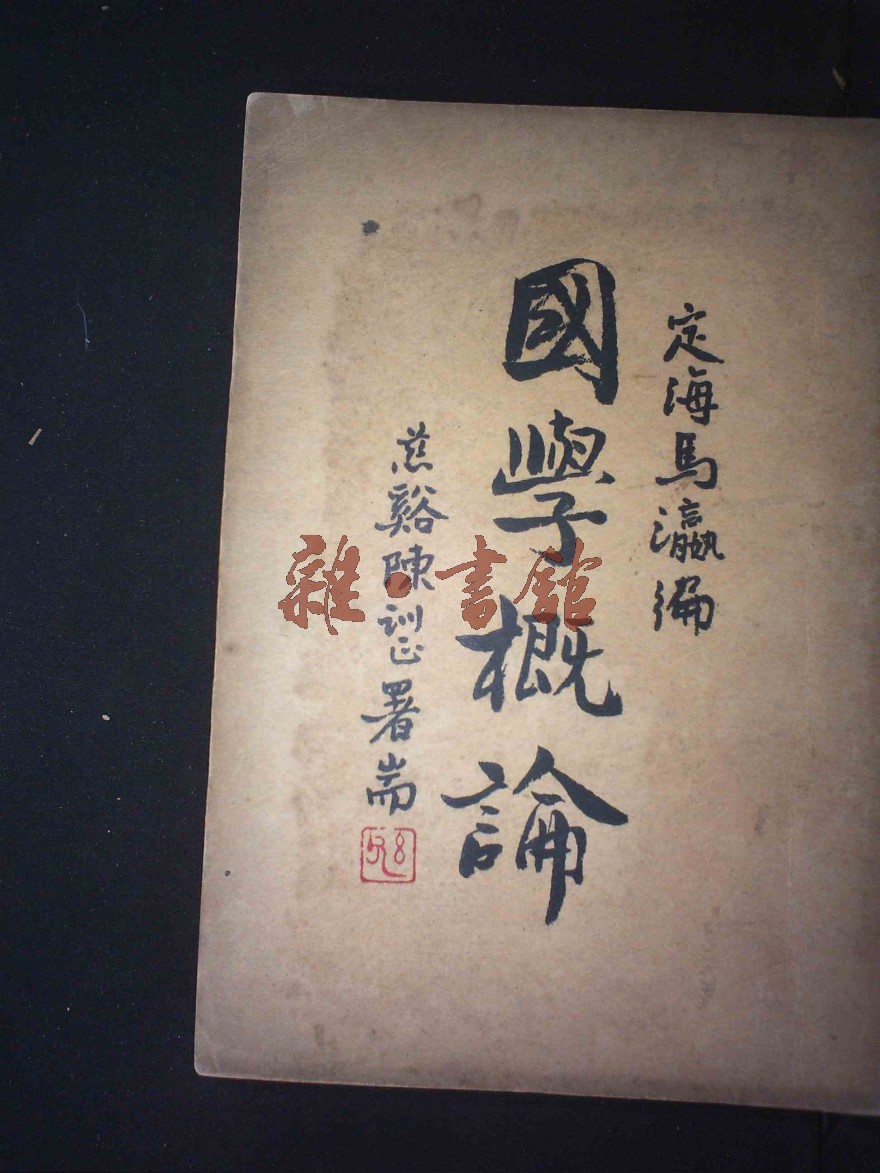 定海馬瀛編
國學概論
慈谿陳訓正署耑
雜·書館